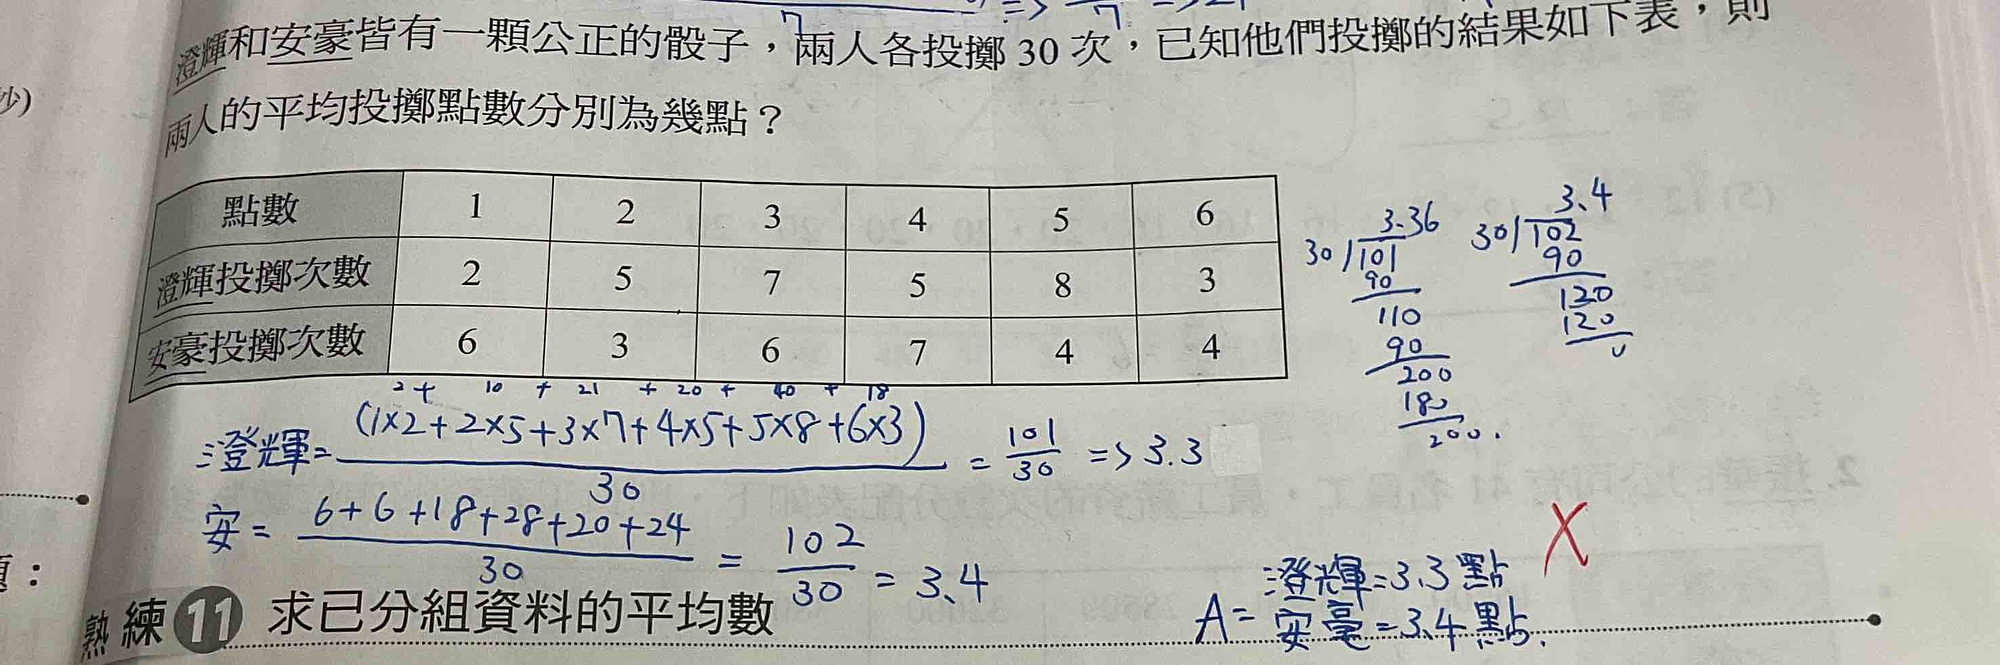 澄輝和安豪皆有一顆公正的骰子，兩人各投擲 30 次，已知他們投擲的結果如下表，則
兩人的平均投擲點數分別為幾點？
點數 1 2 3 4 5 6
澄輝投擲次數 2 5 7 5 8 3
安豪投擲次數 6 3 6 7 4 4
2 + 10 + 21 + 20 + 40 + 18
澄輝= (1×2+2×5+3×7+4×5+5×8+6×3) / 30 = 101 / 30 => 3.3
安= 6+6+18+28+20+24 / 30 = 102 / 30 = 3.4
3.36
30 101
90
110
90
200
180
200.
3.4
30 102
90
120
120
0
X
澄輝=3.3點
A= 安豪=3.4點.
熟練 11 求已分組資料的平均數